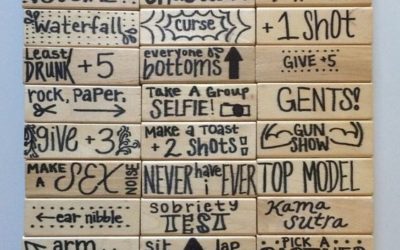 waterfall
curse
+1 Shot
Least
DRUNK +5
everyone
bottoms
GIVE +5
rock, PAPER,
TAKE A GROUP
SELFIE!
GENTS!
give +3
MAKE A TOAST
+2 SHOTS!
GUN
SHOW
MAKE
A SEX NOISE
NEVER have i EVER
TOP MODEL
ear nibble
Sobriety
TEST
Kama
Sutra
arm
sit
lap
PICK A